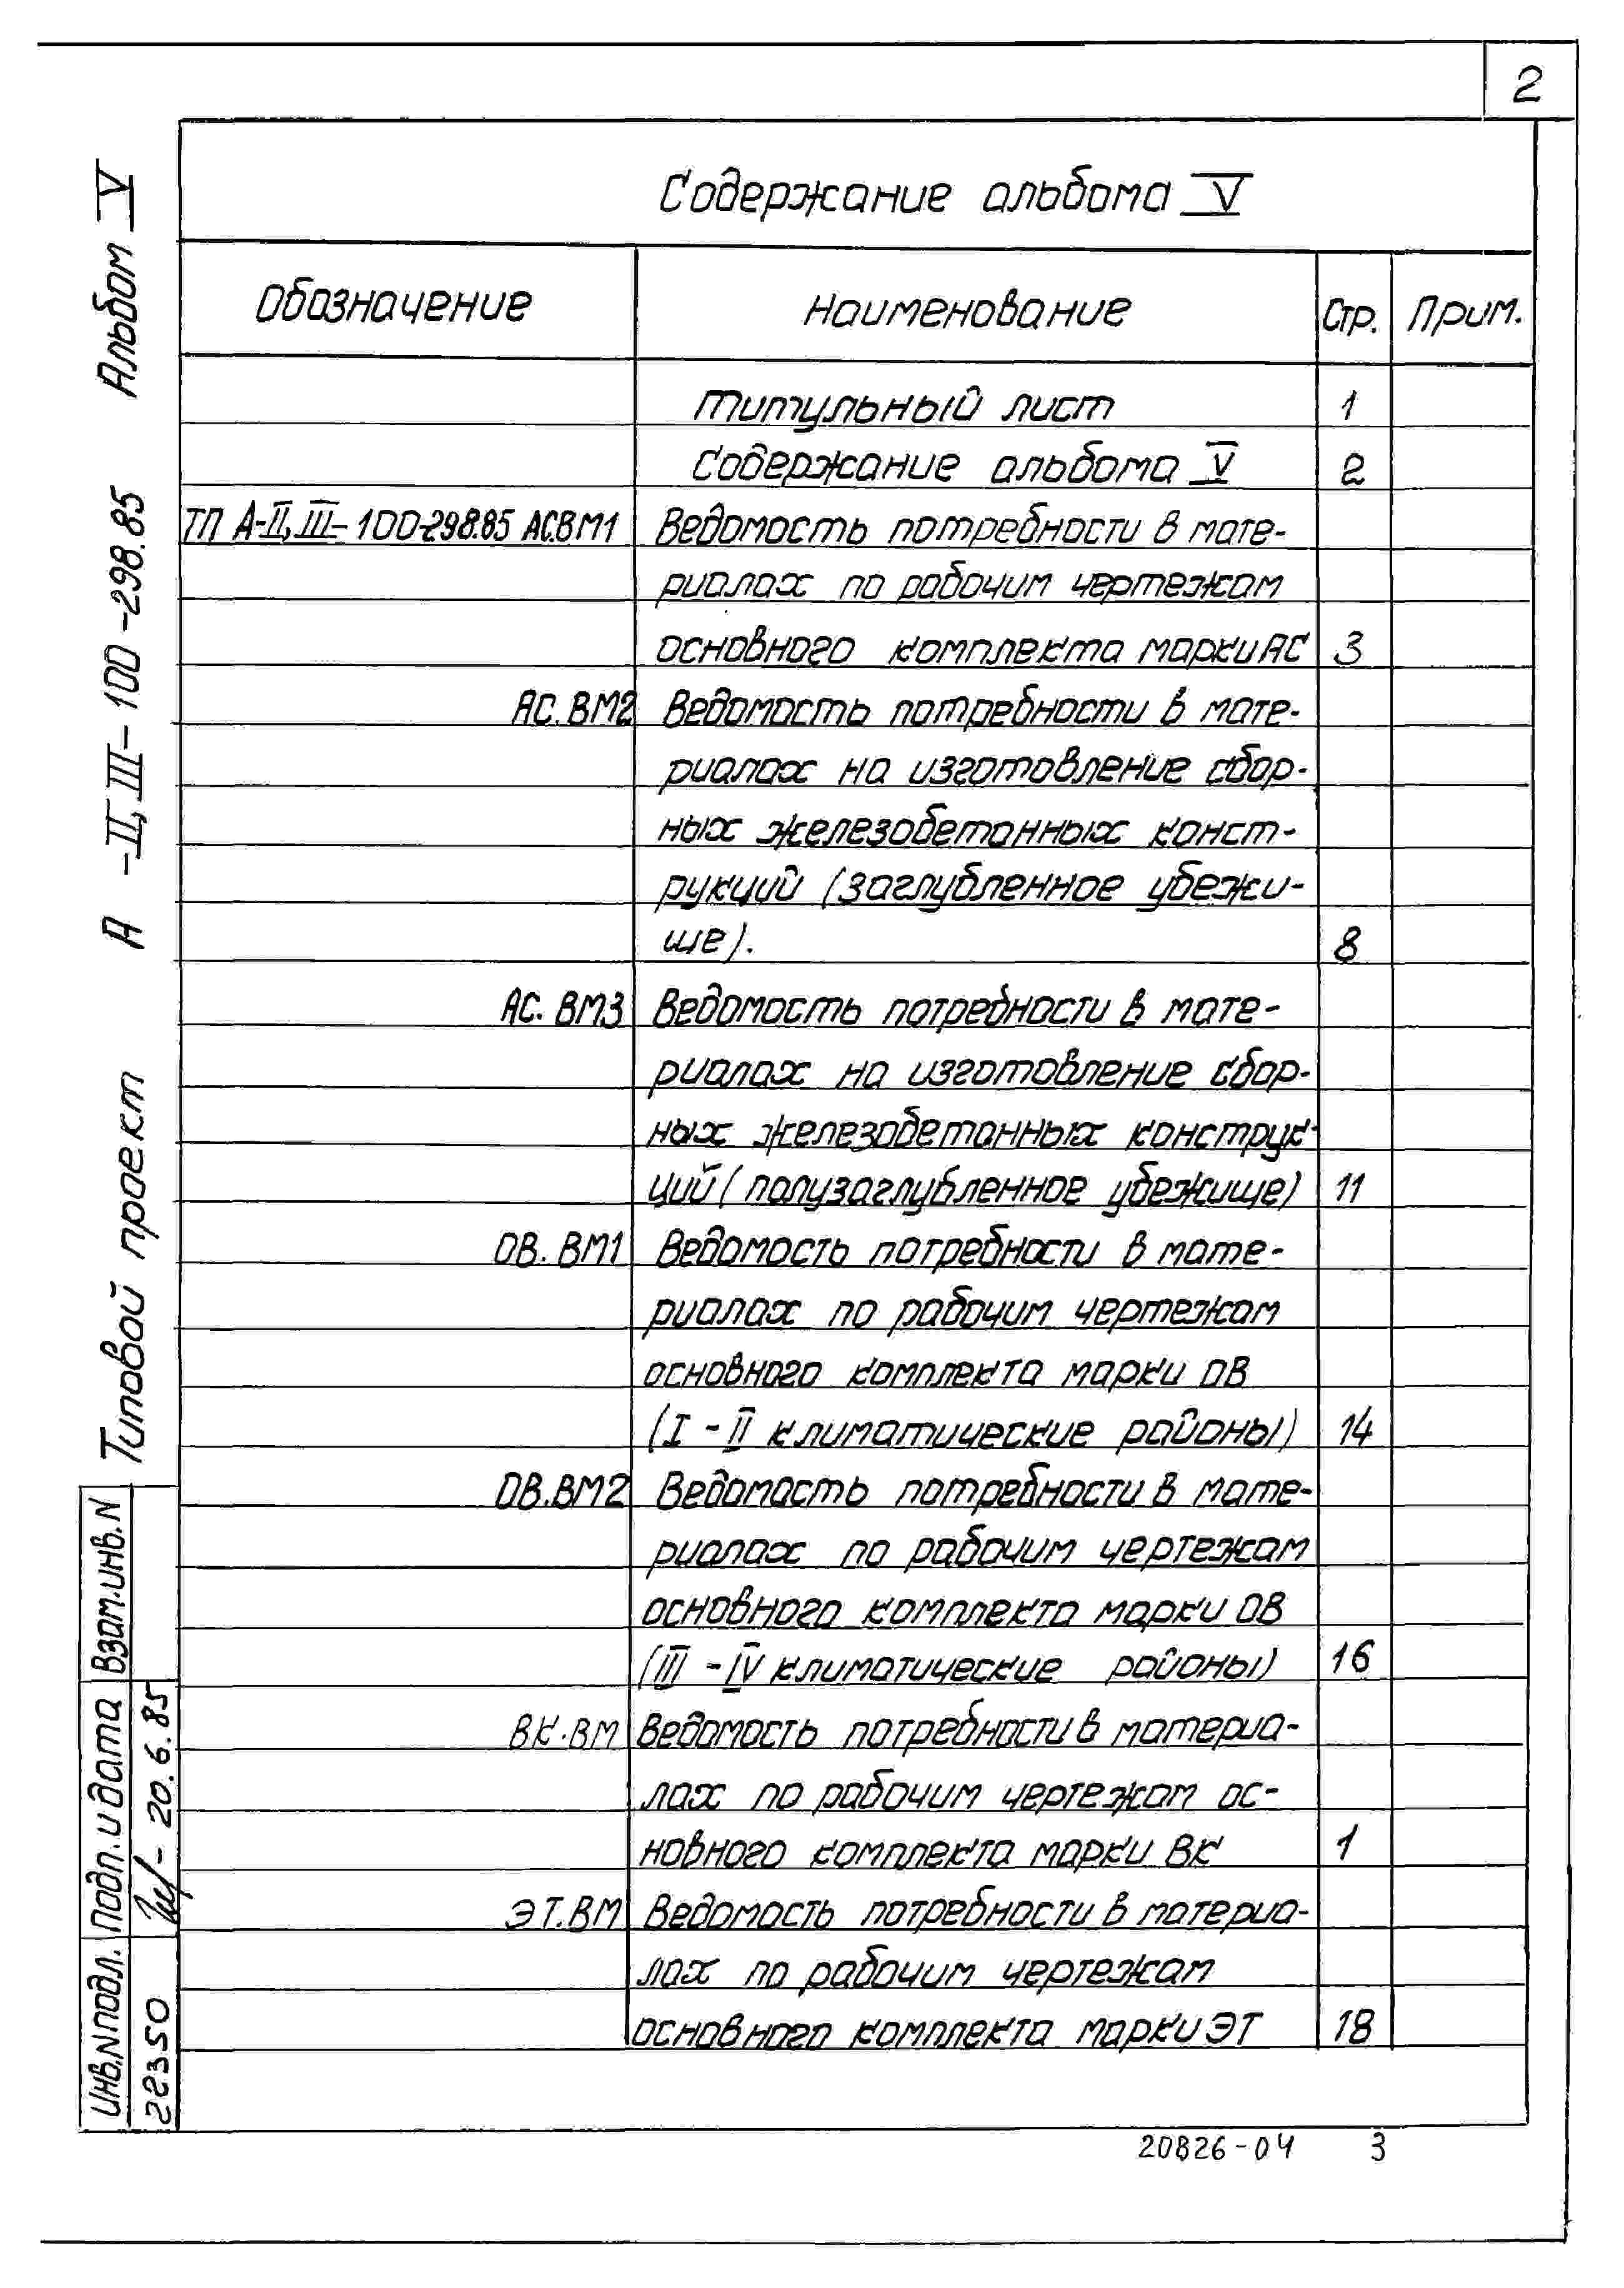 2
Содержание альбома V
Обозначение Наименование Стр. Прим.
Титульный лист 1
Содержание альбома V 2
ТП А-II,III-100-298.85 АС.ВМ1 Ведомость потребности в мате-
риалах по рабочим чертежам
основного комплекта марки АС 3
АС.ВМ2 Ведомость потребности в мате-
риалах на изготовление сбор-
ных железобетонных конст-
рукций (заглубленное убежи-
ще). 8
АС.ВМ3 Ведомость потребности в мате-
риалах на изготовление сбор-
ных железобетонных конструк-
ций (полузаглубленное убежище) 11
ОВ.ВМ1 Ведомость потребности в мате-
риалах по рабочим чертежам
основного комплекта марки ОВ
(I-II климатические районы) 14
ОВ.ВМ2 Ведомость потребности в мате-
риалах по рабочим чертежам
основного комплекта марки ОВ
(III-IV климатические районы) 16
ВК.ВМ Ведомость потребности в материа-
лах по рабочим чертежам ос-
новного комплекта марки ВК 1
ЭТ.ВМ Ведомость потребности в материа-
лах по рабочим чертежам
основного комплекта марки ЭТ 18
20826-04 3
Типовой проект А-II,III-100-298.85 Альбом V
Взам.инв.N
Подп. и дата
20.6.85
Инв.N подл.
22350